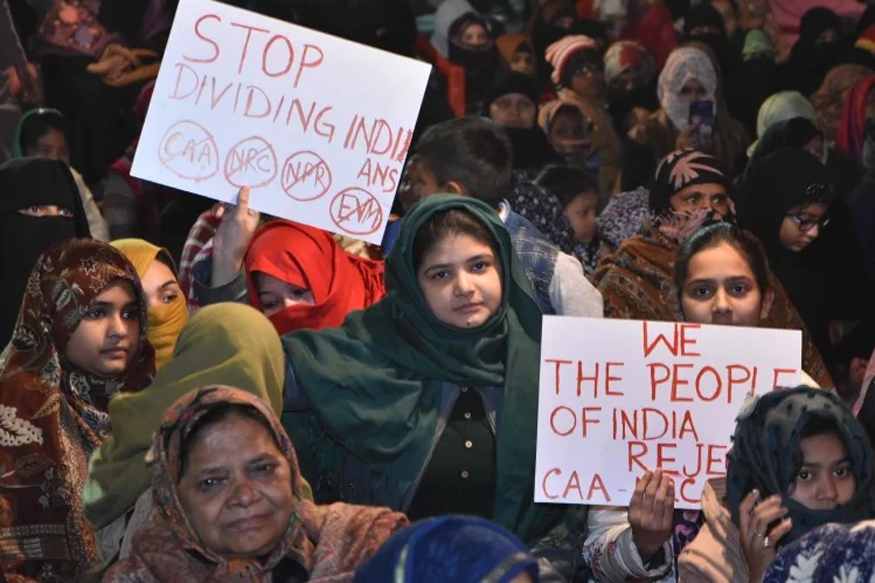 STOP
DIVIDING INDI
ANS
CAA NRC NPR EVM
WE
THE PEOPLE
OF INDIA
REJE
CAA-